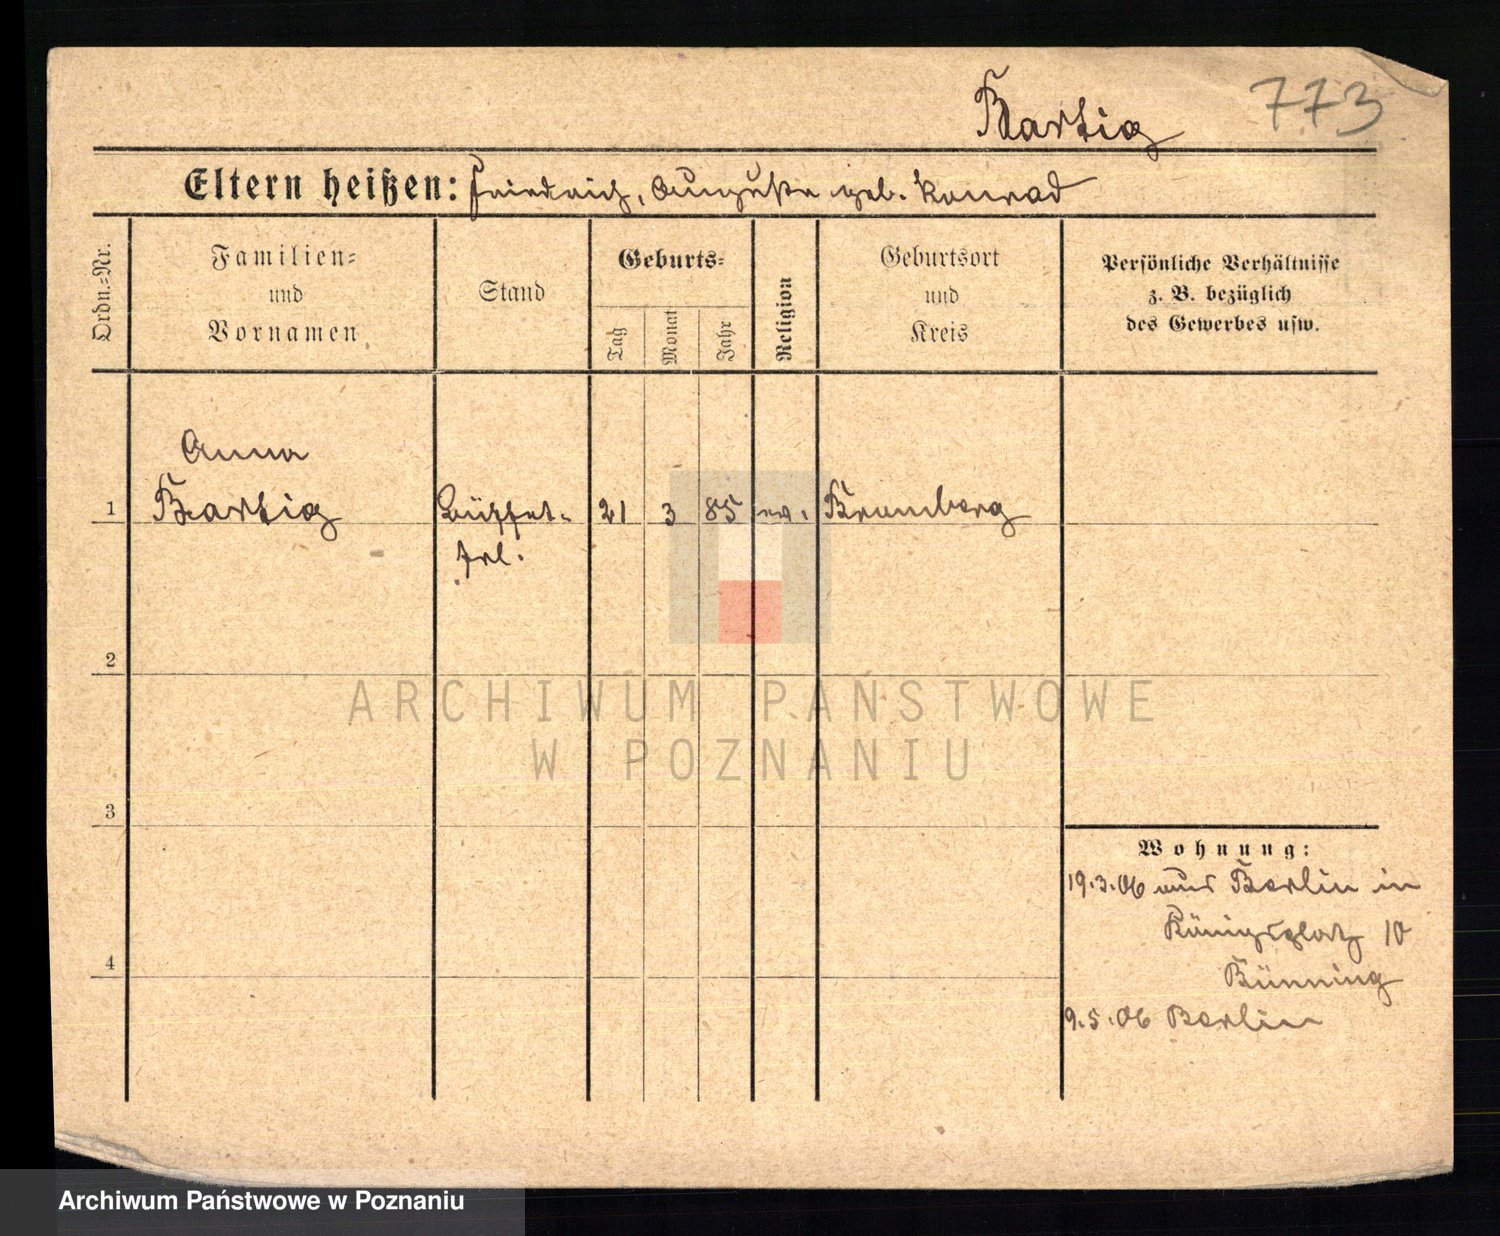 Bartig 773
Eltern heißen: Friedrich, Auguste geb. Konrad
Ordn.-Nr.
Familien-
und
Vornamen
Stand
Geburts-
Tag
Monat
Jahr
Religion
Geburtsort
und
Kreis
Persönliche Verhältnisse
z. B. bezüglich
des Gewerbes usw.
Anna
1 Bartig Büffet- 21 3 85 ev. Bromberg
frl.
2
ARCHIWUM PAŃSTWOWE
W POZNANIU
3
Wohnung:
19.3.06 aus Berlin in
Königsplatz 10
Bünning
4
9.5.06 Berlin
Archiwum Państwowe w Poznaniu